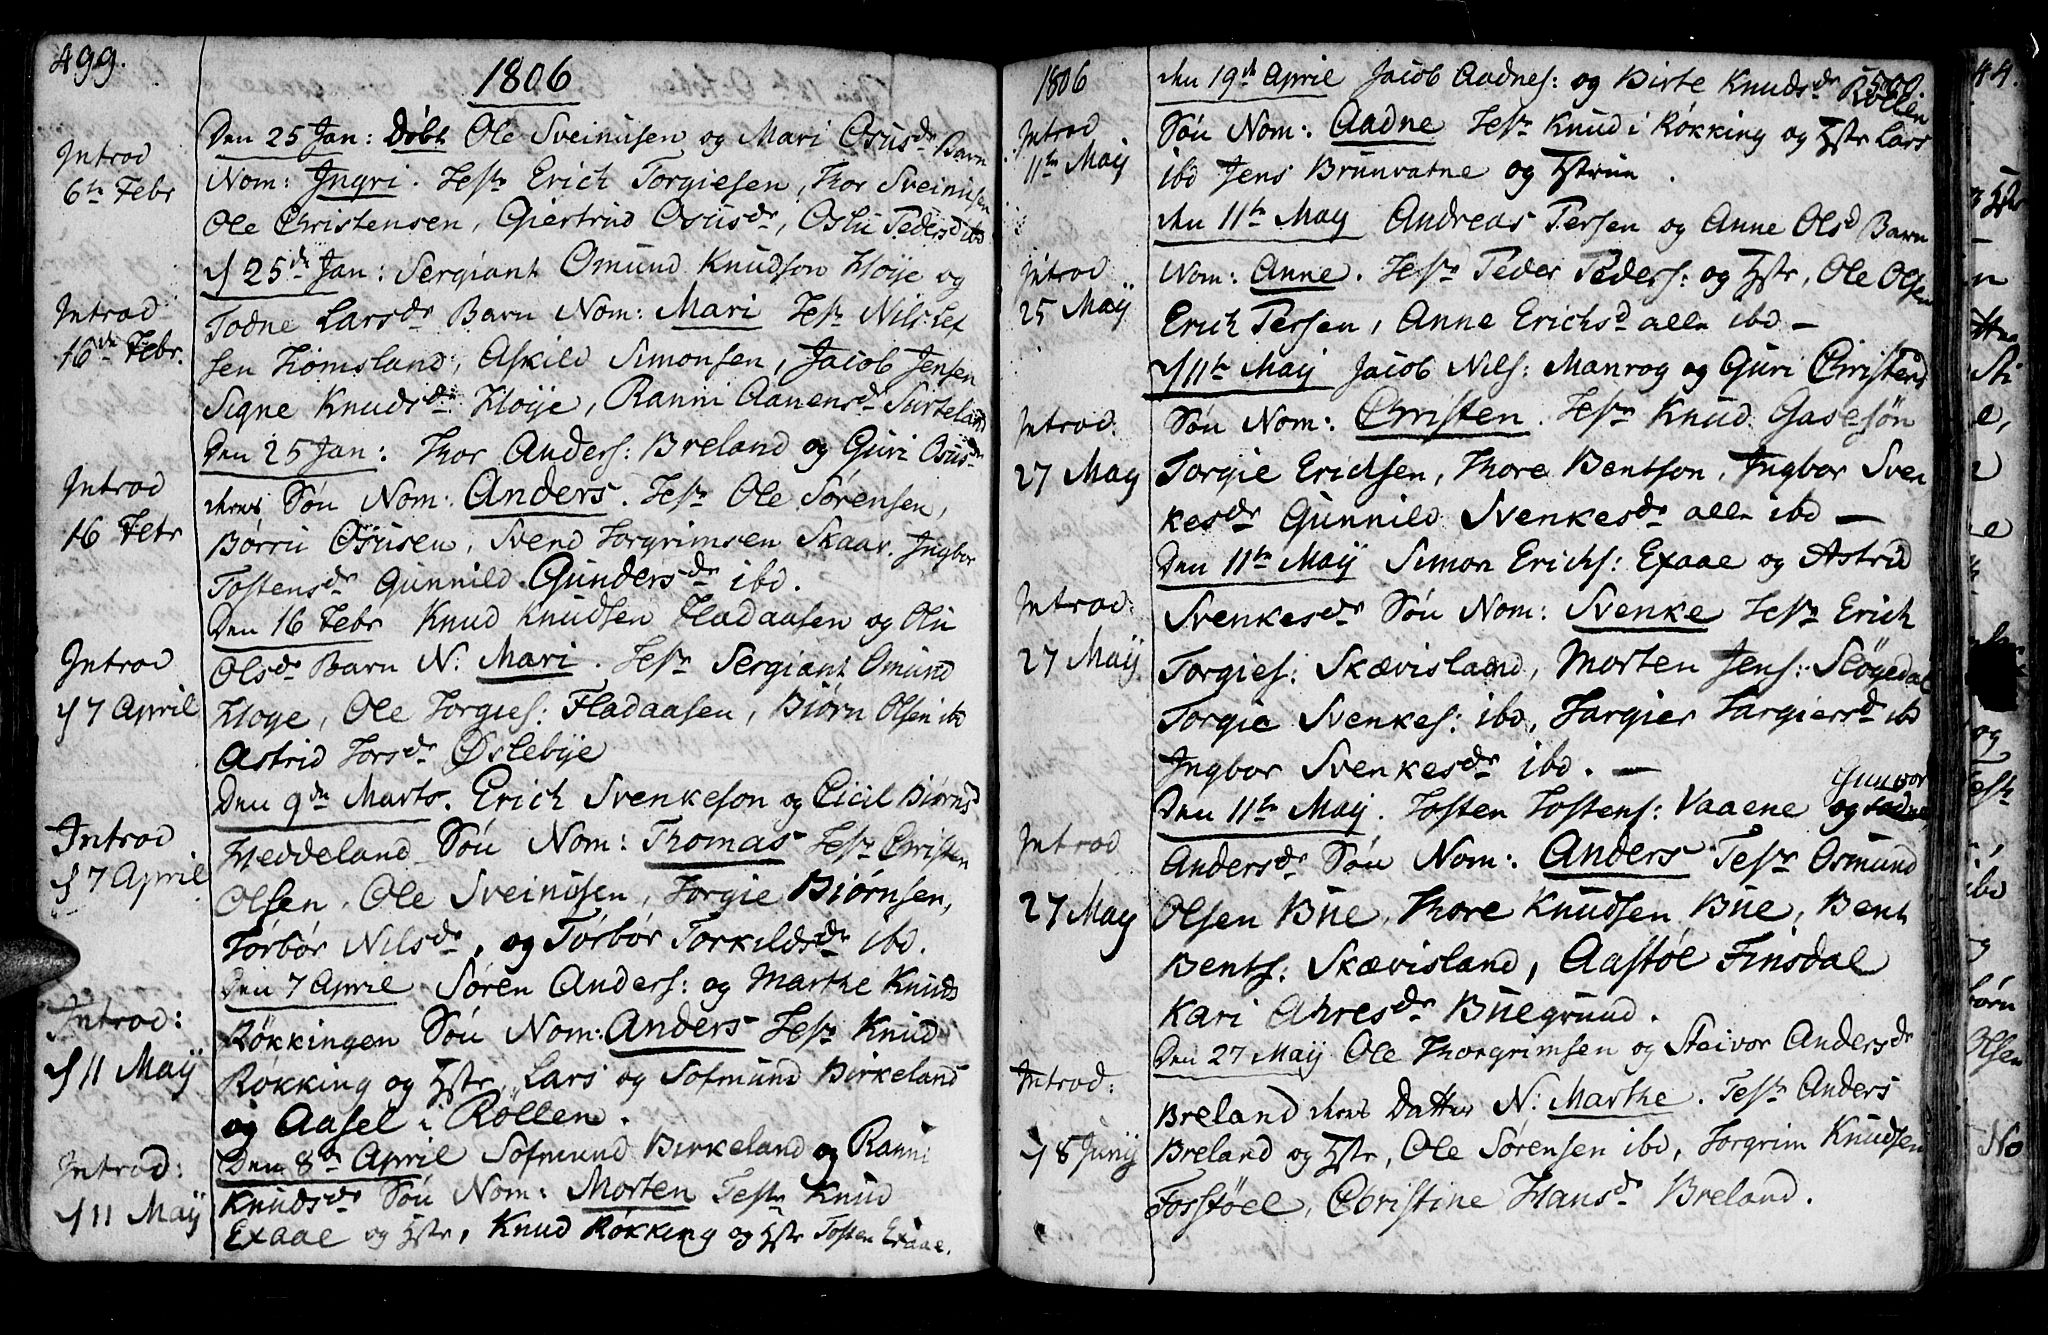 499.
1806
Introd
6te Febr
Den 25 Jan: Døbt Ole Sveinusen og Mari Osusdr Barn
Nom: Ingri. Testr Erich Torgiesen, Thor Sveinusen
Ole Christensen, Giertrud Osusdr, Oslu Pedersd ibd
Introd
16de Febr.
d 25de Jan: Sergiant Omund Knudson Høije og
Todne Larsdr Barn Nom: Mari Testr Nils Lef
sen Homsland, Askild Simonsen, Jacob Jensen
Signe Knudsdr Høije, Ranni Aanensdr Surteland
Introd
16 Febr
Den 25 Jan: Thor Anders: Breland og Guri Osusdr
deres Søn Nom: Anders. Testr Ole Sørensen,
Børru Osusen, Svend Torgrimsen Skaar. Ingbor
Tostensdr Gunnild Gundersdr ibd.
Introd
d 7 April
Den 16 Febr Knud Knudsen Fladaasen og Oli
Olsdr Barn N. Mari. Testr Sergiant Omund
Høye, Ole Torgies: Fladaasen, Biørn Olsen ibd
Astrid Torsdr Øslebye
Introd
d 7 April
Den 9de Marts. Erich Svenkeson og Cicil Biørnsd
Heddeland Søn Nom: Thomas Testr Christen
Olsen, Ole Sveinusen, Torgie Biørnsen,
Torbor Nilsdr, og Torbor Torkildsdr ibd.
Introd:
d 11 Maij
Den 7 April Søren Anders: og Marthe Knuds
Røkkingen Søn Nom: Anders Testr Knud
Røkking og Hstr, Lars og Sofmund Birkeland
og Aasel i Røllen.
Introd:
d 11 Maij
Den 8de April Sofmund Birkeland og Ranni
Knudsdr Søn Nom: Morten Testr Knud
Exaae og Hstr, Knud Røkking og Hstr Tosten Exaae.
500.
1806
Introd
11te Maij
den 19de April Jacob Aadnes: og Birte Knudsdr Røllen
Søn Nom: Aadne Testr Knud i Røkking og Hstr Lars
ibd Jens Brunvatne og Hstrue.
Introd
25 Maij
den 11te Maij Andreas Persen og Anne Olsd Barn
Nom: Anne. Testr Peder Peders: og Hstr, Ole Olsen
Erich Persen, Anne Erichsd alle ibd —
Introd:
27 Maij
d 11te Maij Jacob Nils: Manrog og Guri Christensd
Søn Nom: Christen. Testr Knud Gasesøn
Torgie Erichsen, Thore Bentson, Ingbor Sven
kesdr Gunnild Svenkesdr alle ibd —
Introd:
27 Maij
Den 11te Maij Simon Erichs: Exaae og Astrid
Svenkesdr Søn Nom: Svenke Testr Erich
Torgies: Skævisland, Morten Jens: Sløgedal
Torgie Svenkes: ibd, Targier Targiersdr ibd
Ingbor Svenkesdr ibd. —
Introd
27 Maij
Gunvor
Den 11te Maij. Tosten Tostens: Vaaene og Todne
Andersdr Søn Nom: Anders Testr Osmund
Olsen Bue, Thore Knudsen Bue, Bent
Bents: Skævisland, Aastøl Finsdal
Kari Ahresdr Buegrund.
Introd:
d 8 Junij
Den 27 Maij Ole Thorgrimsen og Steivor Andersdr
Breland deres Datter N: Marthe. Testr Anders
Breland og Hstr, Ole Sørensen ibd, Torgrim Knudsen
Fosstøel, Christine Hansdr Breland.